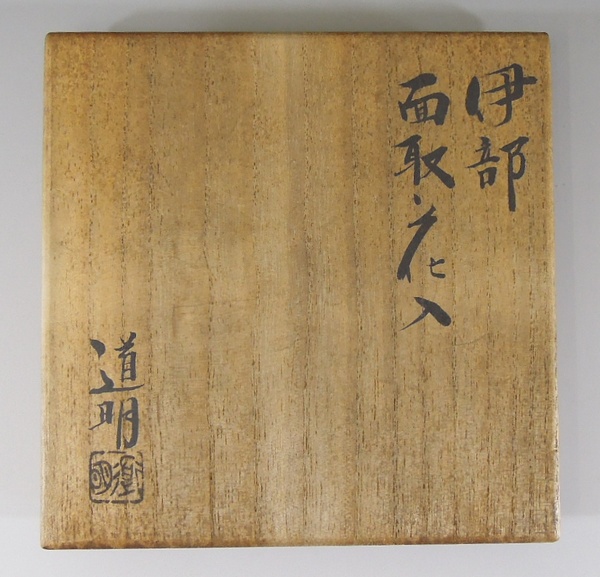 伊部
面取花入
道明